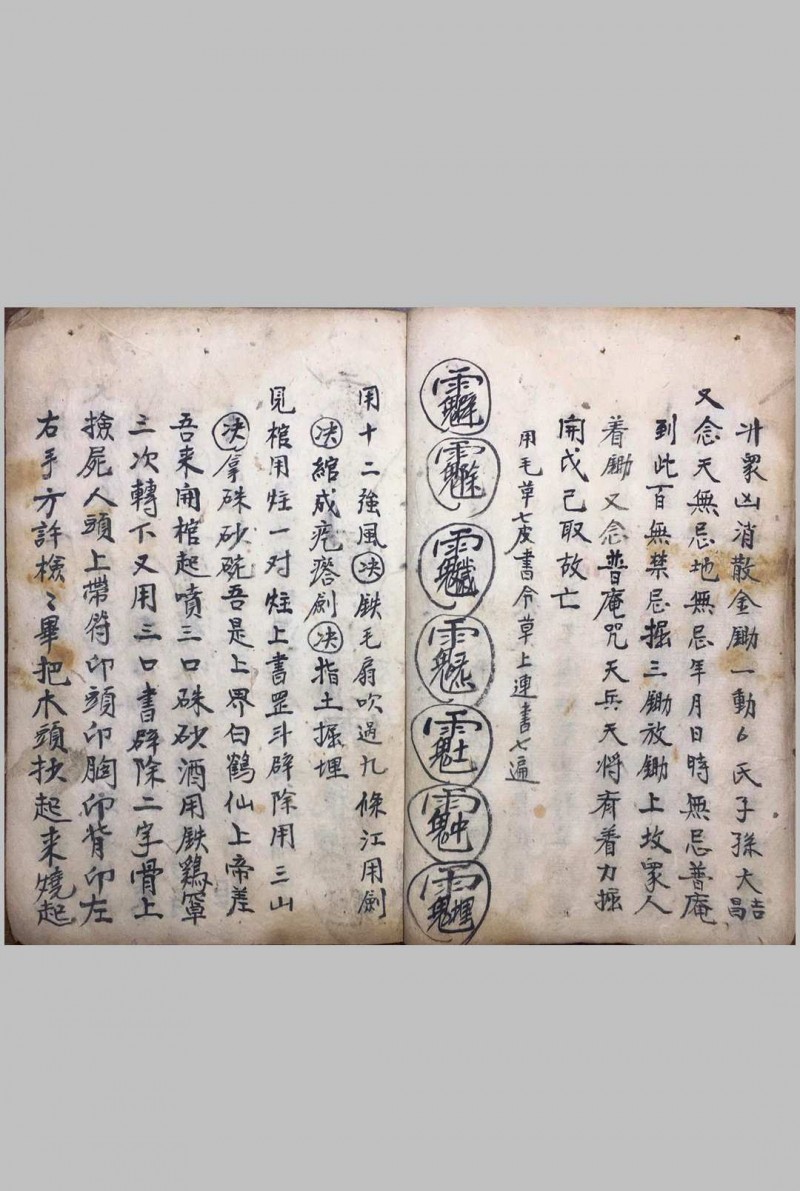 升眾凶消散金鋤一動厶氏子孫大吉昌
又念天無忌地無忌年月日時無忌普庵
到此百無禁忌掘三鋤放鋤上坟眾人
着鋤又念普庵咒天兵天将斉着力掘
開戊己取故亡
用毛草七皮書令草上連書七遍
用十二強風决鉄毛扇吹過九條江用劍
决綰成疙瘩劍决指土掘埋
見棺用炷一对炷上書罡斗辟除用三山
决拿硃砂碗吾是上界白鶴仙上帝差
吾来開棺起噴三口硃砂酒用鉄鷄罩
三次轉下又用三口書辟除二字骨上
撿屍人頭上帶符印頭印胸印背印左
右手方許檢〻畢把木頭抄起来燒起